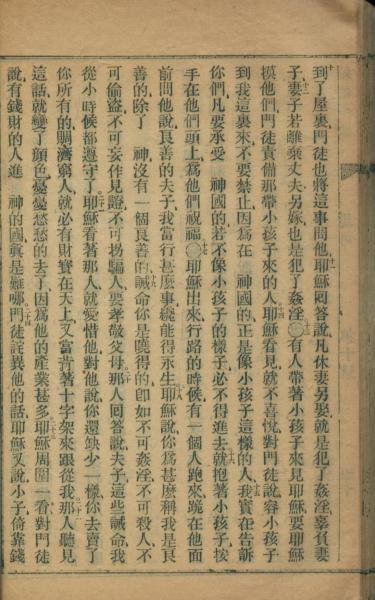 到了屋裏門徒也將這事問他耶穌囘答說凡休妻另娶就是犯了姦淫辜負妻
子妻子若離棄丈夫另嫁也是犯了姦淫〇有人帶著小孩子來見耶穌要耶穌
摸他們門徒責備那帶小孩子來的人耶穌看見就不喜悅對門徒說容小孩子
到我這裏來不要禁止因爲在 神國的正是像小孩子這樣的人我實在告訴
你們凡要承受 神國的若不像小孩子的樣子必不得進去就抱著小孩子按
手在他們頭上爲他們祝福〇耶穌出來行路的時候有一個人跑來跪在他面
前問他說良善的夫子我當行甚麽事纔能得永生耶穌說你爲甚麽稱我是良
善的除了 神沒有一個良善的誡命你是曉得的卽如不可姦淫不可殺人不
可偷盜不可妄作見證不可拐騙人要孝敬父母那人囘答說夫子這些誡命我
從小時候都遵守了耶穌看著那人就愛惜他對他說你還缺少一樣你去賣了
你所有的賙濟窮人就必有財寶在天上又當肯著十字架來跟從我那人聽見
這話就變了顏色憂憂愁愁的去了因爲他的產業甚多耶穌周圍一看對門徒
說有錢財的人進 神的國眞是難哪門徒詫異他的話耶穌又說小子倚靠錢